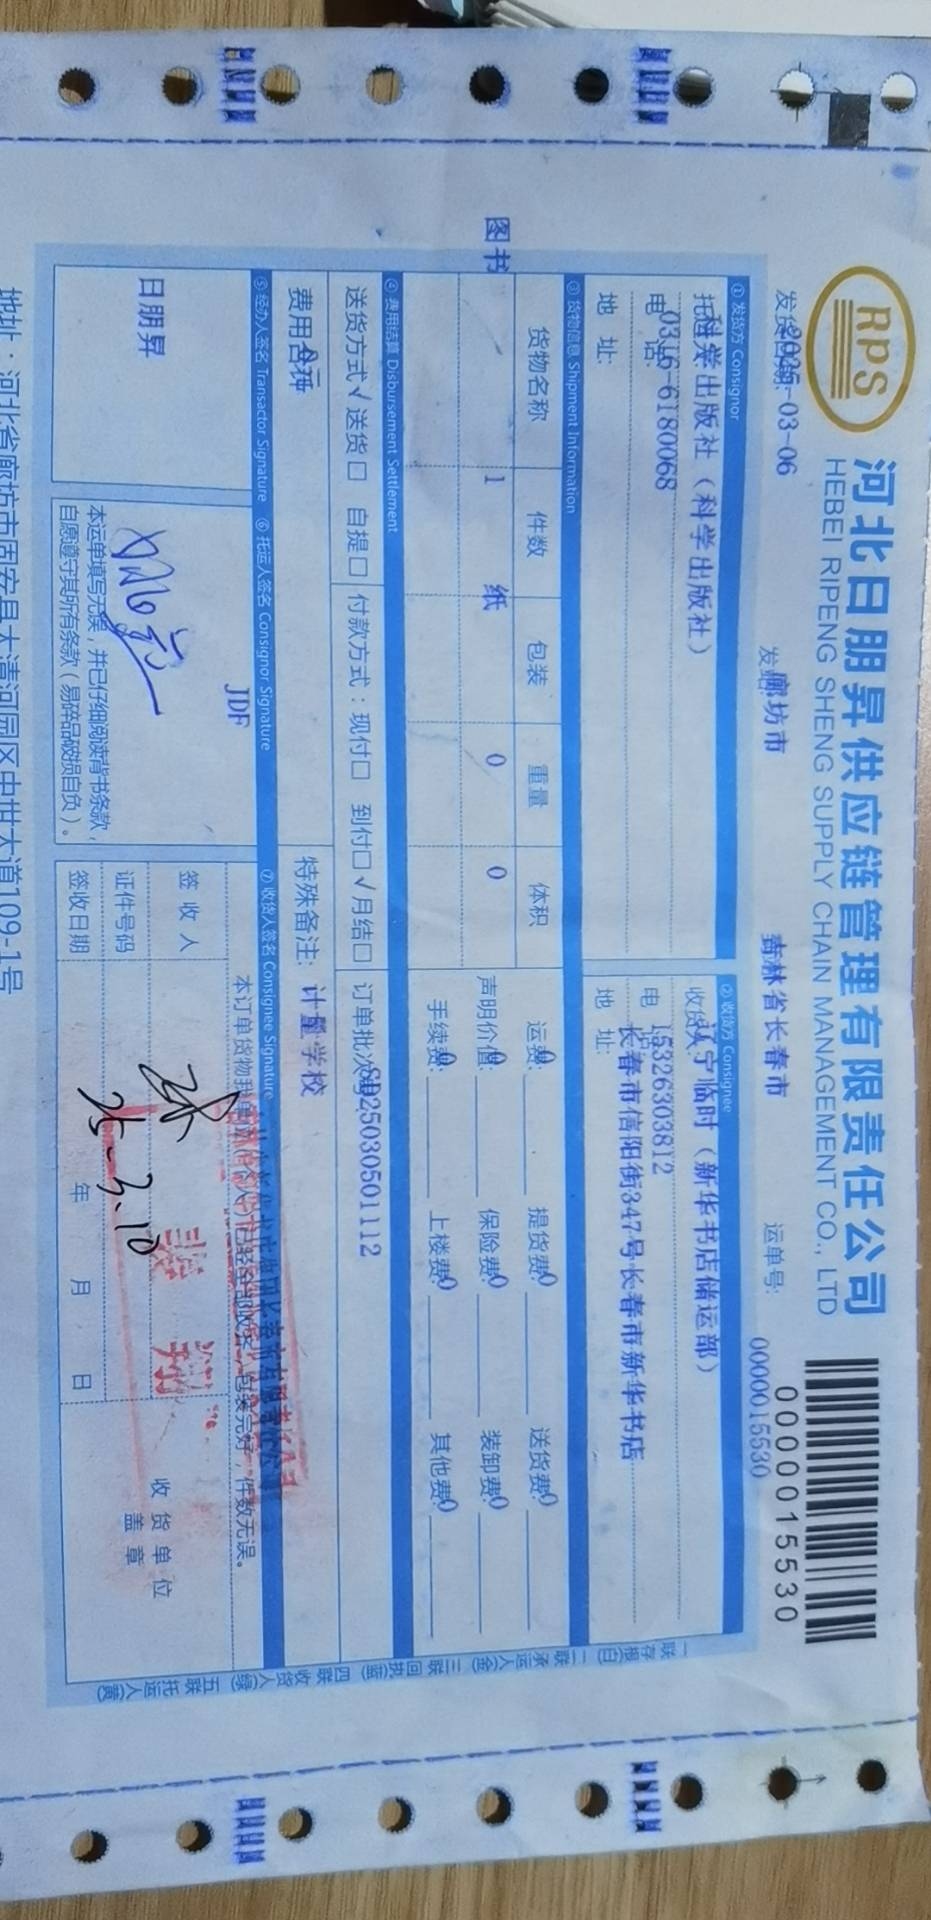 RPS
河北日朋昇供应链管理有限责任公司
HEBEI RIPENG SHENG SUPPLY CHAIN MANAGEMENT CO., LTD
0000015530
2025-03-06
廊坊市
吉林省长春市
运单号:
0000015530
① 发货方 Consignor
科学出版社（科学出版社）
0316-6180068
地 址:
② 收货方 Consignee
辽宁临时（新华书店储运部）
15326303812
地 址:
长春市信阳街347号长春市新华书店
③ 货物信息 Shipment Information
货物名称 件数 包装 重量 体积
图书 1 纸 0 0
运费: 0 提货费: 0 送货费: 0
声明价值: 0 保险费: 0 装卸费: 0
手续费: 0 上楼费: 0 其他费: 0
④ 费用结算 Disbursement Settlement
送货方式√送货□ 自提□ 付款方式：现付□ 到付□√月结□
SD25030501112
特殊备注: 计量学校
⑤ 经办人签名 Transactor Signature
日朋昇
⑥ 托运人签名 Consignor Signature
JDF
本运单填写无误，并已仔细阅读背书条款，
自愿遵守其所有条款（易碎品破损自负）。
⑦ 收货人签名 Consignee Signature
签 收 人
证件号码
签收日期 25.3.10 年 月 日
收 货 单 位
盖 章
一联 存根(白) 二联 承运人(金) 三联 回执(蓝) 四联 收货人(绿) 五联 托运人(黄)
地址：河北省廊坊市固安县大清河园区中世大道109-1号